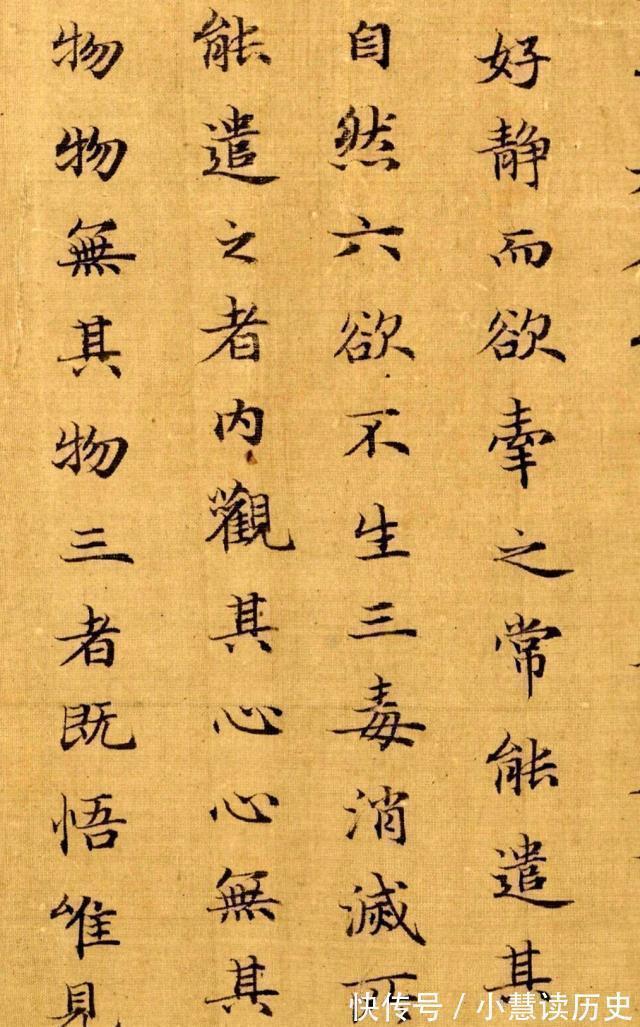 好静而欲牽之常能遣其
自然六欲不生三毒消滅所
能遣之者内觀其心心無其
物物無其物三者既悟唯見
快传号／小慧读历史